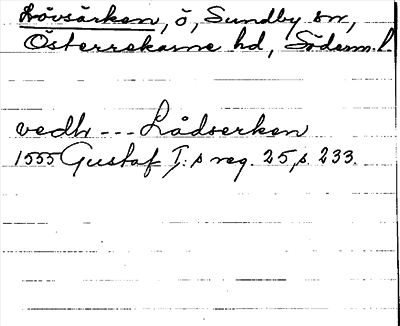 Lövsärken, ö, Sundby sn,
Österrekarne hd, Söderm. l.
vedh --- Lådserken
1555 Gustaf I:s reg. 25, s. 233.